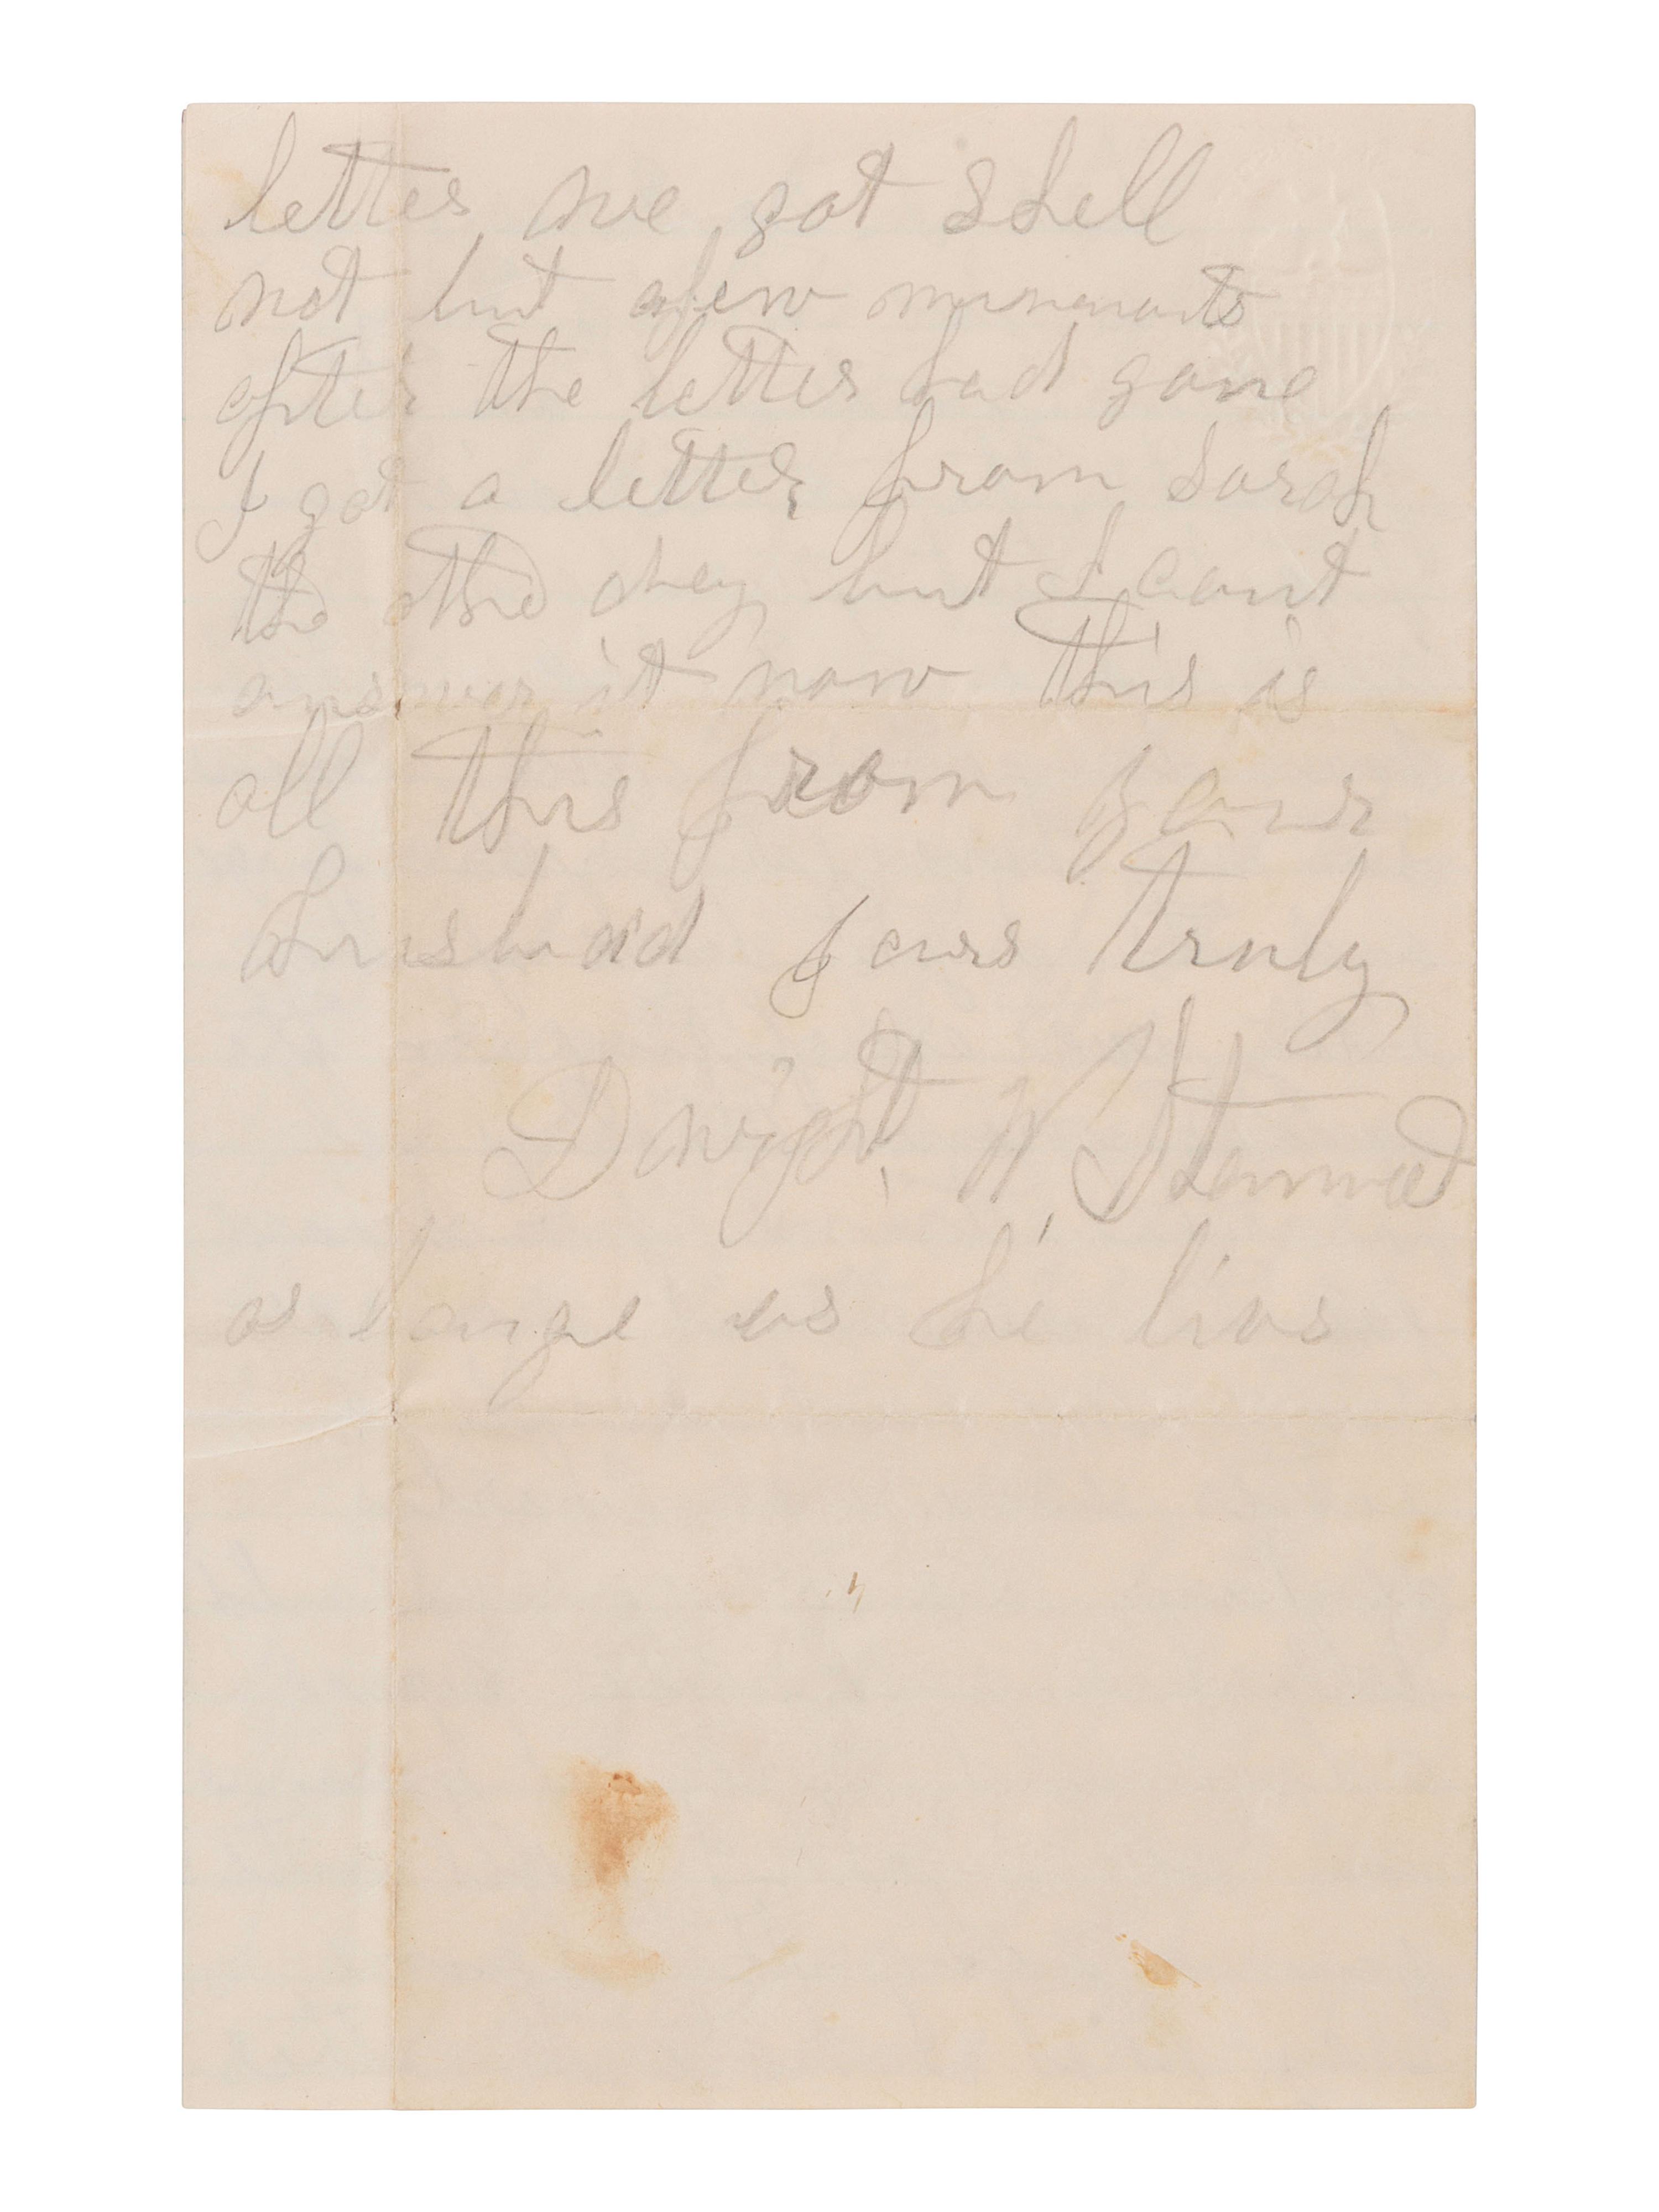 letter we got shell
not but afew
after the letter had gone
I got a letter from Sarah
the othe day but I cant
answer it now this is
all this from your
husband yours truly
Dwight W
as longe as he livs